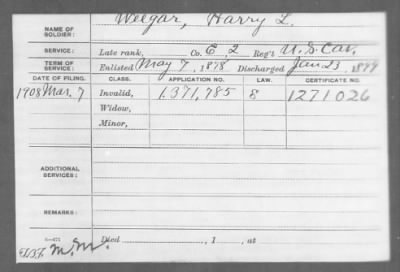 NAME OF SOLDIER: Weegar, Harry L.
SERVICE: Late rank, Co. E, 2 Reg't U.S. Cav.
TERM OF SERVICE: Enlisted May 7, 1898 Discharged Jan 23 1899
DATE OF FILING. CLASS. APPLICATION NO. LAW. CERTIFICATE NO.
1908 Mar. 7 Invalid, 1.371,785 E 1271026
Widow,
Minor,
ADDITIONAL SERVICES:
REMARKS:
Died , 1 , at
M.M.